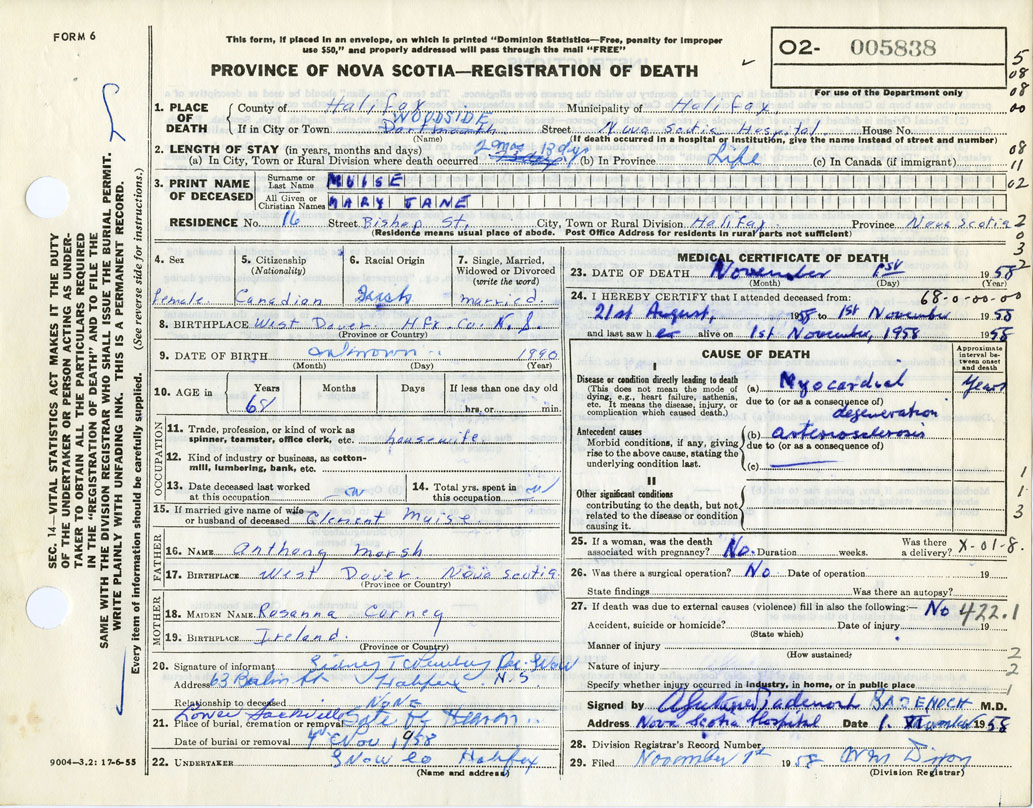 FORM 6
This form, if placed in an envelope, on which is printed "Dominion Statistics—Free, penalty for improper
use $50," and properly addressed will pass through the mail "FREE"
O2- 005838
For use of the Department only
PROVINCE OF NOVA SCOTIA—REGISTRATION OF DEATH
5
08
08
00
08
11
02
2
0
3
2
SEC. 14—VITAL STATISTICS ACT MAKES IT THE DUTY
OF THE UNDERTAKER OR PERSON ACTING AS UNDER-
TAKER TO OBTAIN ALL THE PARTICULARS REQUIRED
IN THE "REGISTRATION OF DEATH" AND TO FILE THE
SAME WITH THE DIVISION REGISTRAR WHO SHALL ISSUE THE BURIAL PERMIT.
WRITE PLAINLY WITH UNFADING INK. THIS IS A PERMANENT RECORD.
Every item of information should be carefully supplied. (See reverse side for instructions.)
1. PLACE OF DEATH
County of Halifax Municipality of Halifax
WOODSIDE
If in City or Town Dartmouth Street Nova Scotia Hospital House No.
(Name) (If death occurred in a hospital or institution, give the name instead of street and number)
2. LENGTH OF STAY (in years, months and days) 2 mos 13 dys
(a) In City, Town or Rural Division where death occurred (b) In Province Life (c) In Canada (if immigrant)
3. PRINT NAME OF DECEASED
Surname or Last Name MUISE
All Given or Christian Names MARY JANE
RESIDENCE No. 16 Street Bishop St, City, Town or Rural Division Halifax Province Nova Scotia
(Residence means usual place of abode. Post Office Address for residents in rural parts not sufficient)
4. Sex
Female
5. Citizenship
(Nationality)
Canadian
6. Racial Origin
7. Single, Married,
Widowed or Divorced
(write the word)
married.
8. BIRTHPLACE West Dover. Hfx Co. N.S.
(Province or Country)
9. DATE OF BIRTH unknown 1990
(Month) (Day) (Year)
10. AGE in
Years Months Days If less than one day old
68 hrs. or min.
OCCUPATION
11. Trade, profession, or kind of work as
spinner, teamster, office clerk, etc. housewife.
12. Kind of industry or business, as cotton-
mill, lumbering, bank, etc.
13. Date deceased last worked
at this occupation
14. Total yrs. spent in
this occupation
15. If married give name of wife
or husband of deceased Clement Muise.
FATHER
16. NAME Anthony Marsh
17. BIRTHPLACE West Dover. Nova Scotia
(Province or Country)
MOTHER
18. MAIDEN NAME Rosanna Carney
19. BIRTHPLACE Ireland.
(Province or Country)
20. Signature of informant Sidney T
Address 63 St Halifax N.S
Relationship to deceased NONE
Lower Sackville
21. Place of burial, cremation or removal Gate of Heaven
Date of burial or removal 4th Nov 1958
22. UNDERTAKER Snow Co Halifax
(Name and address)
9004—3.2: 17-6-55
MEDICAL CERTIFICATE OF DEATH
23. DATE OF DEATH November 1st 1958
(Month) (Day) (Year)
68-0-00-00
24. I HEREBY CERTIFY that I attended deceased from:
21st August, 1958 to 1st November 1958
and last saw her alive on 1st November, 1958 1958
CAUSE OF DEATH
Approximate
interval be-
tween onset
and death
I
Disease or condition directly leading to death
(This does not mean the mode of
dying, e.g., heart failure, asthenia,
etc. It means the disease, injury, or
complication which caused death.)
(a) Myocardial Years
due to (or as a consequence of)
degeneration
Antecedent causes
Morbid conditions, if any, giving
rise to the above cause, stating the
underlying condition last.
(b) arteriosclerosis
due to (or as a consequence of)
(c)
II
Other significant conditions
contributing to the death, but not
related to the disease or condition
causing it.
1
1
3
25. If a woman, was the death
associated with pregnancy? No. Duration weeks. Was there
a delivery? X-01-8.
26. Was there a surgical operation? No Date of operation 19
State findings Was there an autopsy?
27. If death was due to external causes (violence) fill in also the following:— No 422.1
Accident, suicide or homicide? Date of injury 19
(State which)
Manner of injury 2
(How sustained)
Nature of injury 2
Specify whether injury occurred in industry, in home, or in public place 1
Signed by BADENOCH M.D.
Address Nova Scotia Hospital Date 1. November 1958
28. Division Registrar's Record Number
29. Filed November 1958
(Division Registrar)